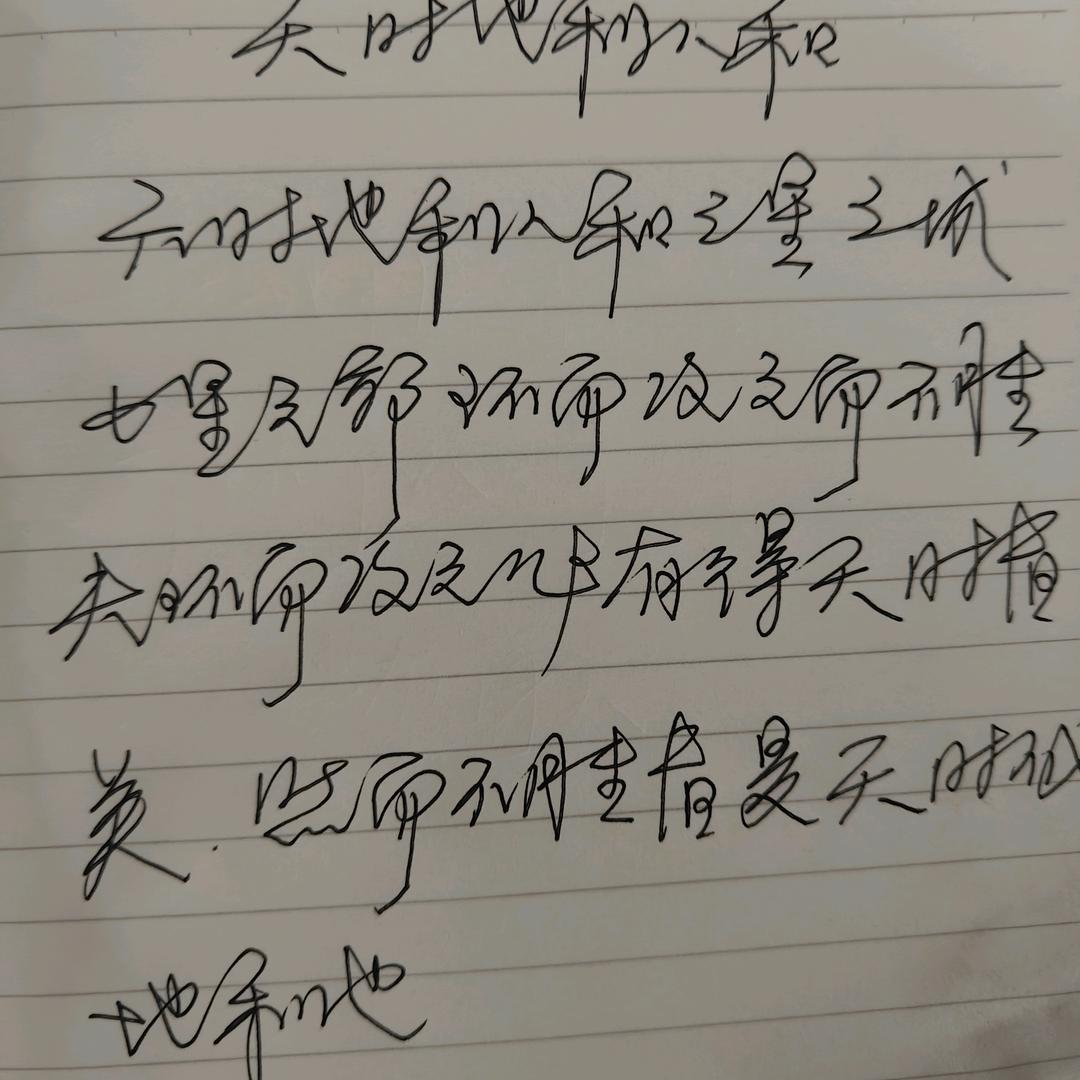 天时地利人和
天时地利人和三里之城
七里之郭环而攻之而不胜
夫环而攻之有得天时者
矣.然而不胜者是天时不如
地利也